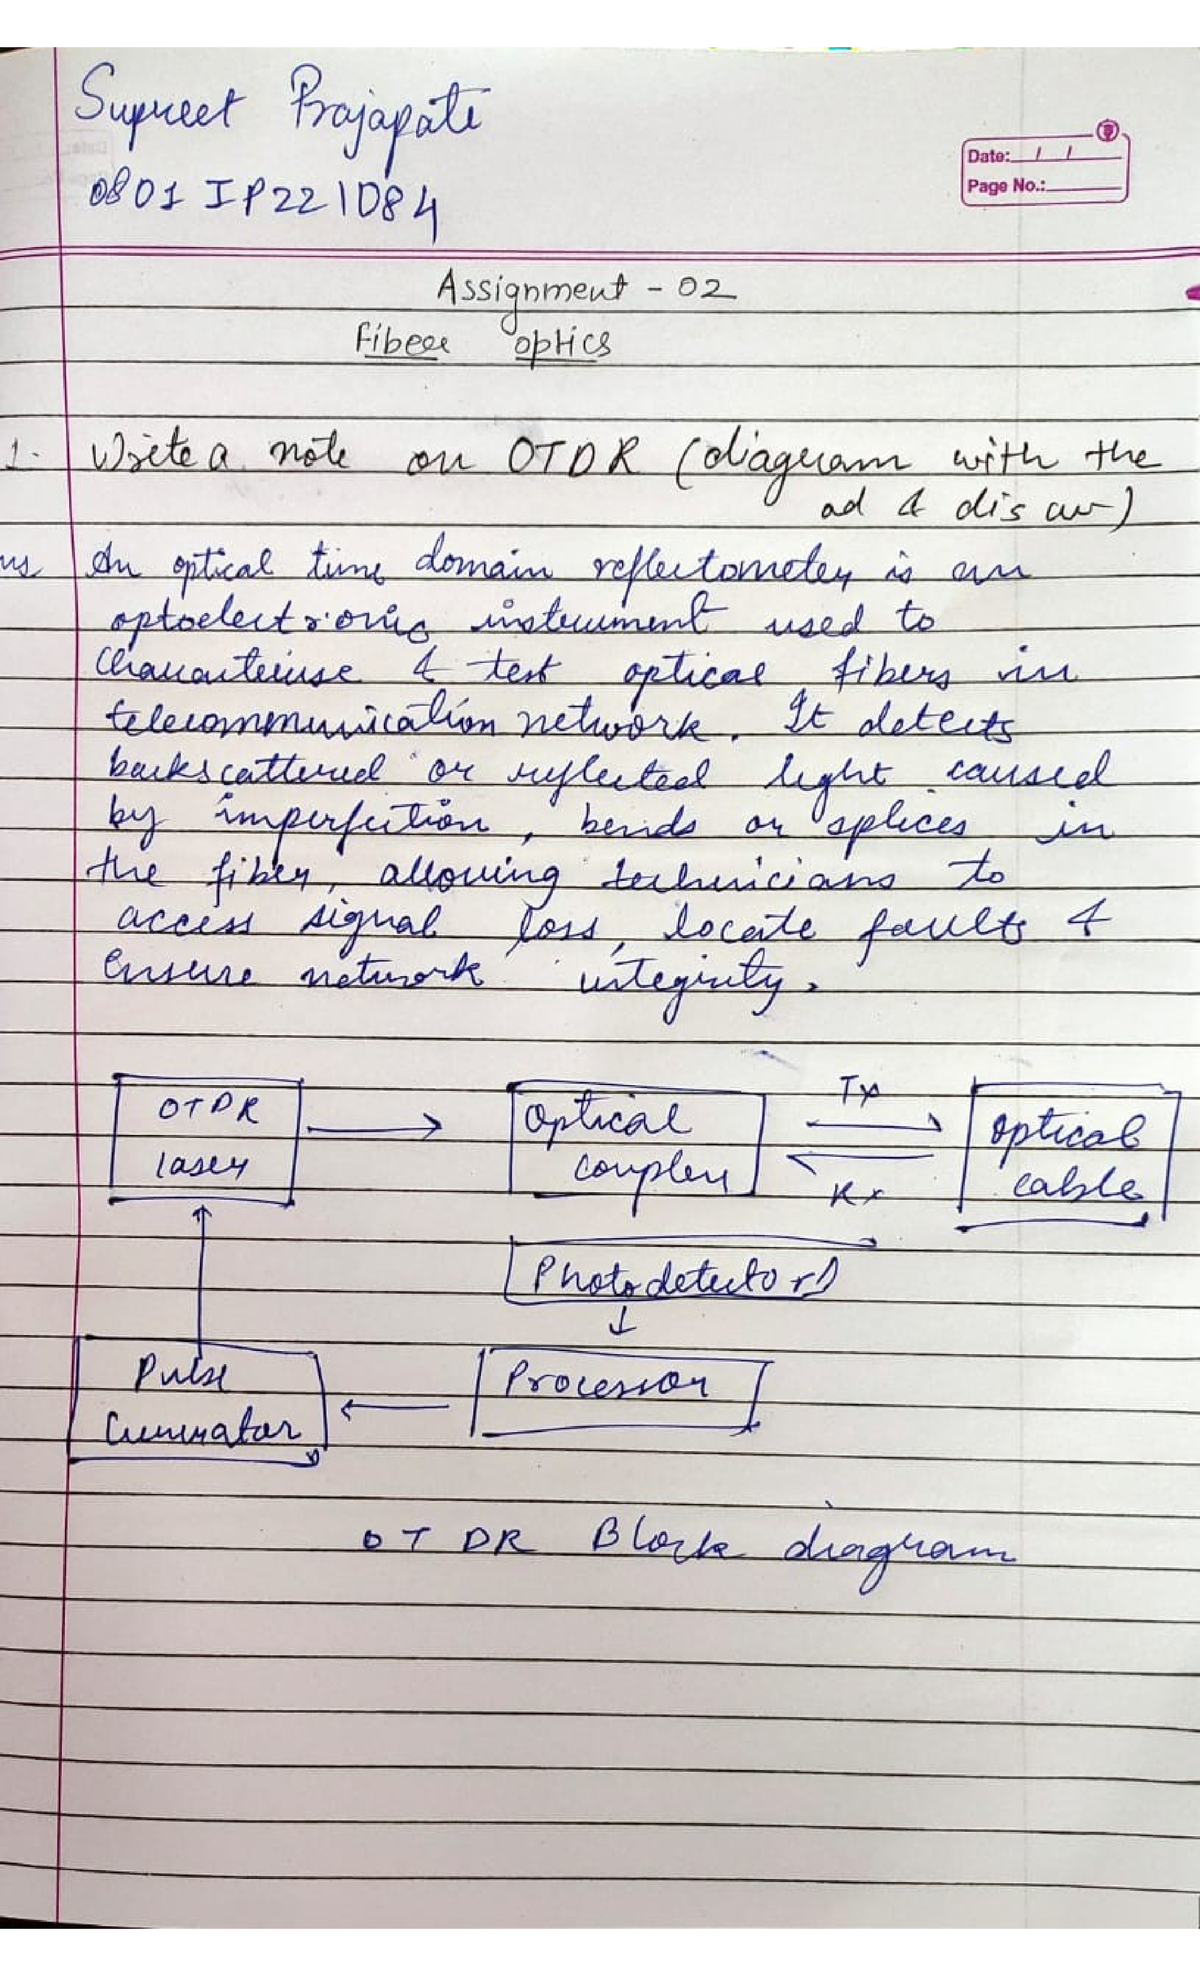 Supreet Prajapati
0801 IP221084
Date: / /
Page No.:
Assignment - 02
Fiber optics
1. Write a note on OTDR (diagram with the
ad & dis adv)
ns An optical time domain reflectometer is an
optoelectronic instrument used to
characterise & test optical fibers in
telecommunication network. It detects
backscattered or reflected light caused
by imperfection, bends or splices in
the fiber, allowing technicians to
access signal loss, locate faults &
Ensure network integrity.
OTDR
laser
Optical
coupler
Tx
Rx
Optical
cable
Photodetector
Processor
Pulse
Generator
OTDR Block diagram